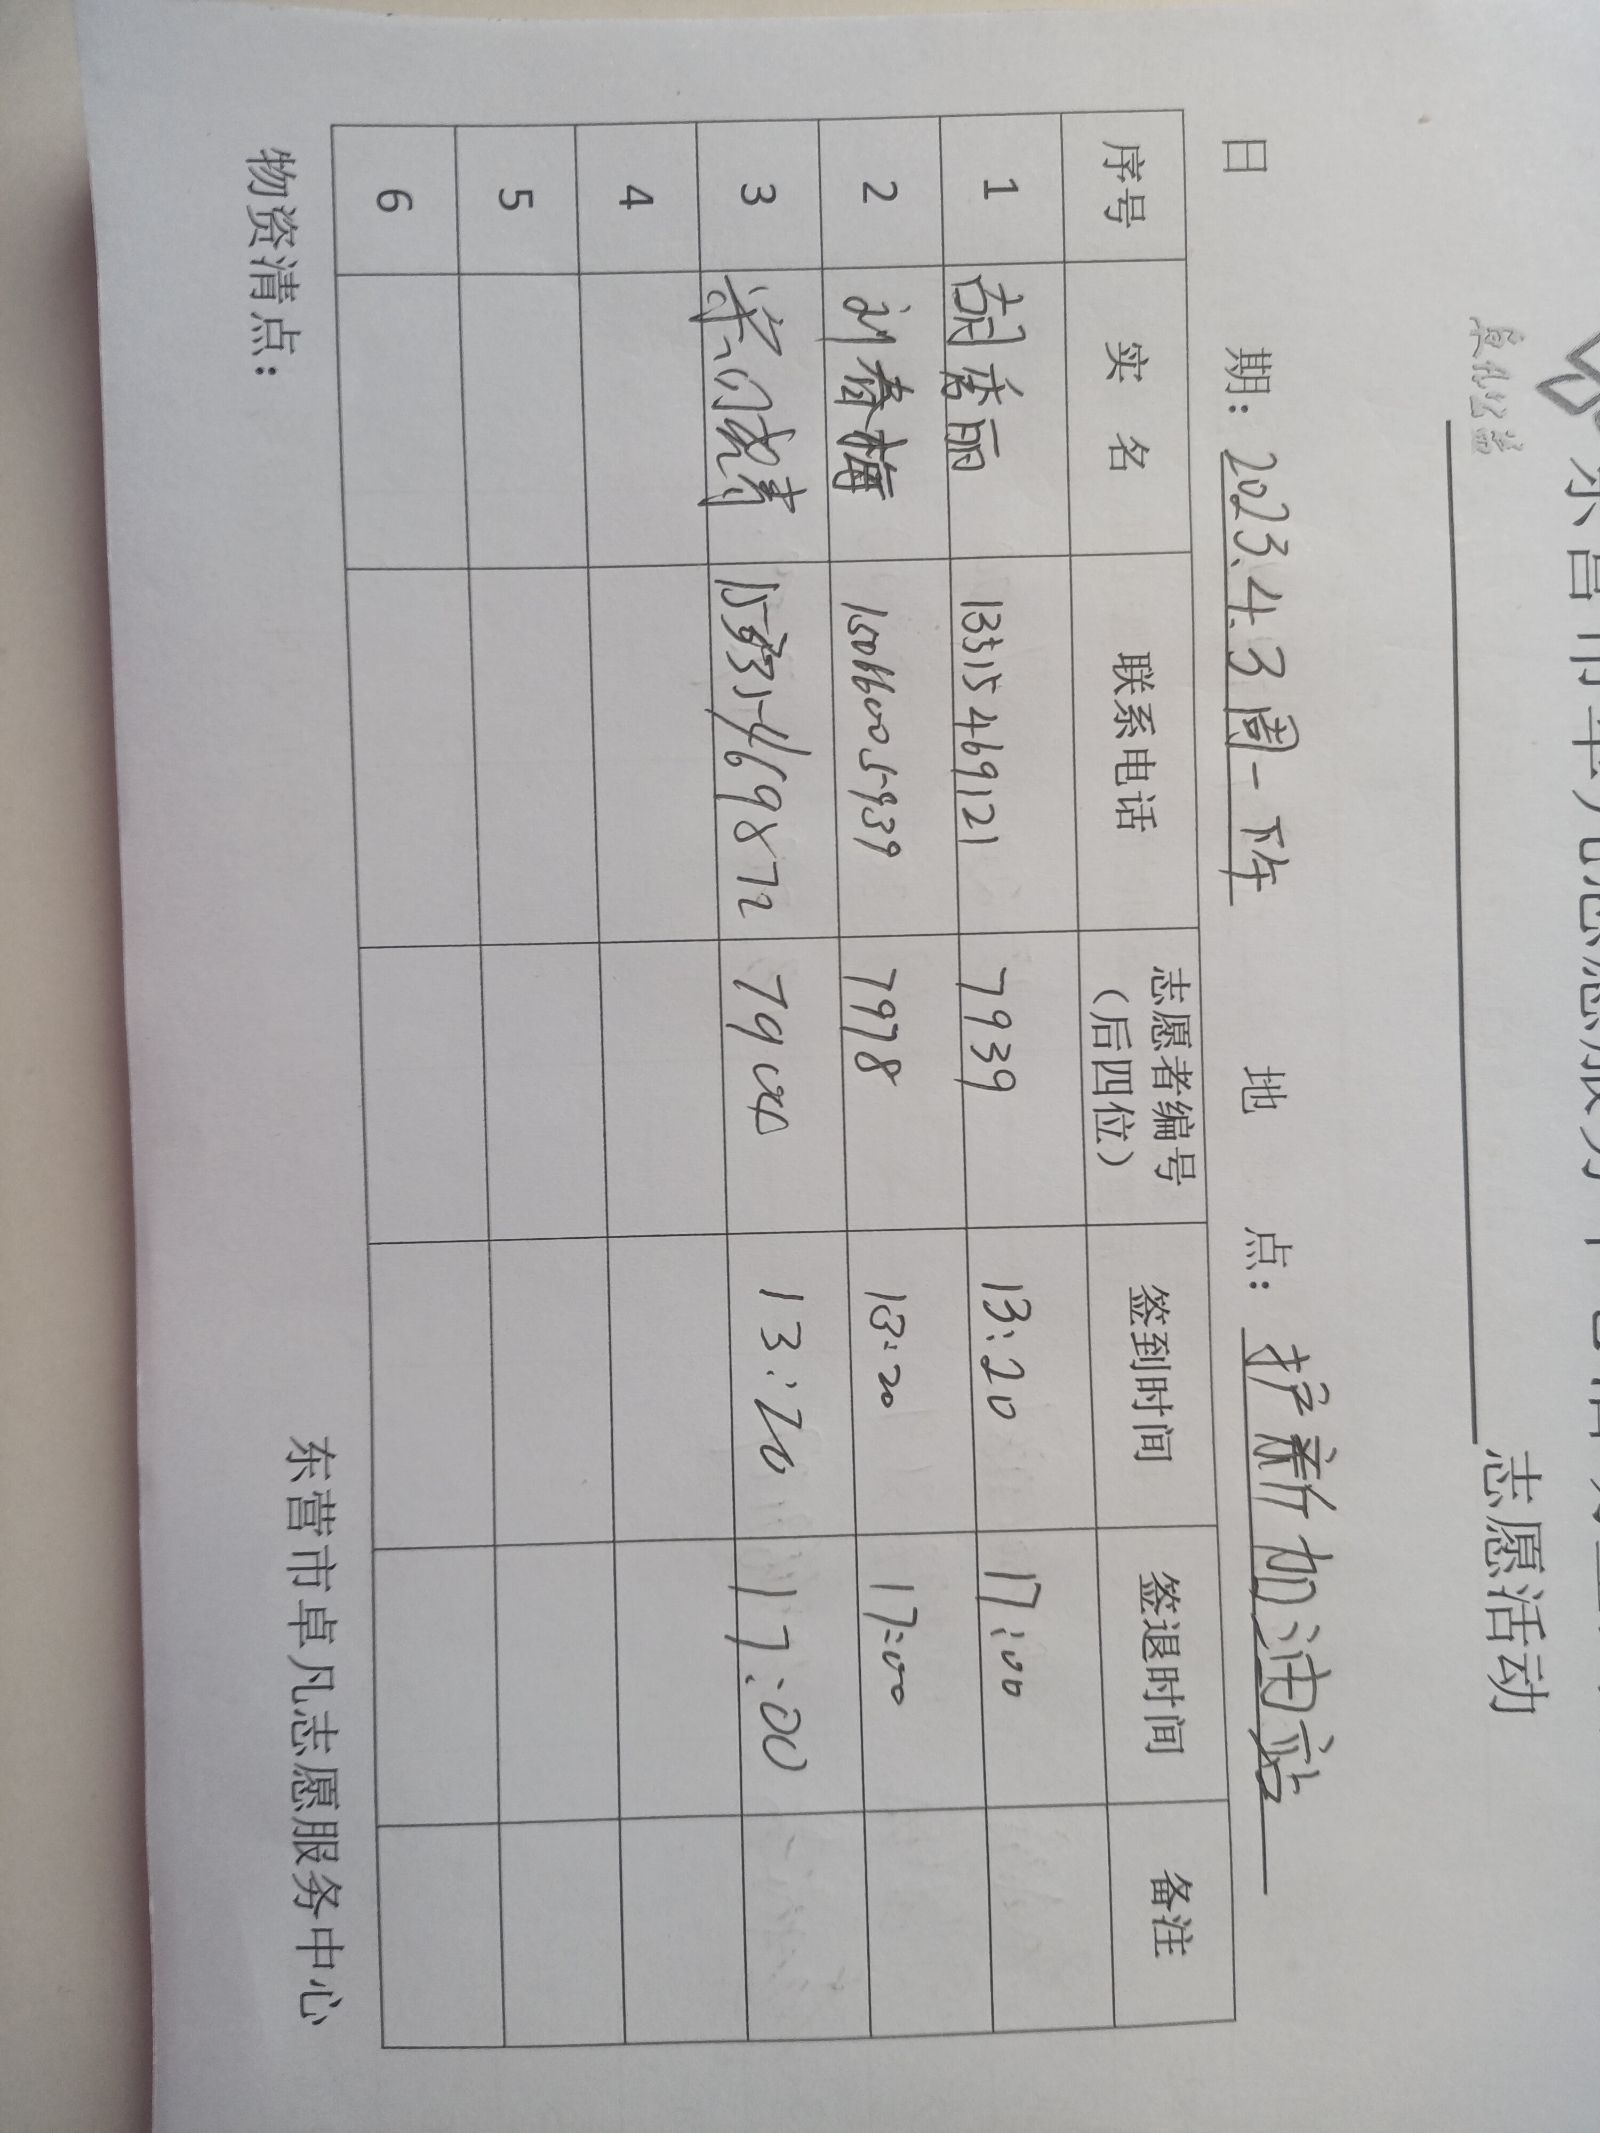 卓凡公益
志愿活动
日 期：2023.4.3周一下午 地 点：护新加油站
序号 实 名 联系电话 志愿者编号（后四位） 签到时间 签退时间 备注
1 胡秀丽 13315469121 7939 13:20 17:00
2 刘春梅 15066005939 7978 13:20 17:00
3 7900 13:20 17:00
4
5
6
物资清点：
东营市卓凡志愿服务中心